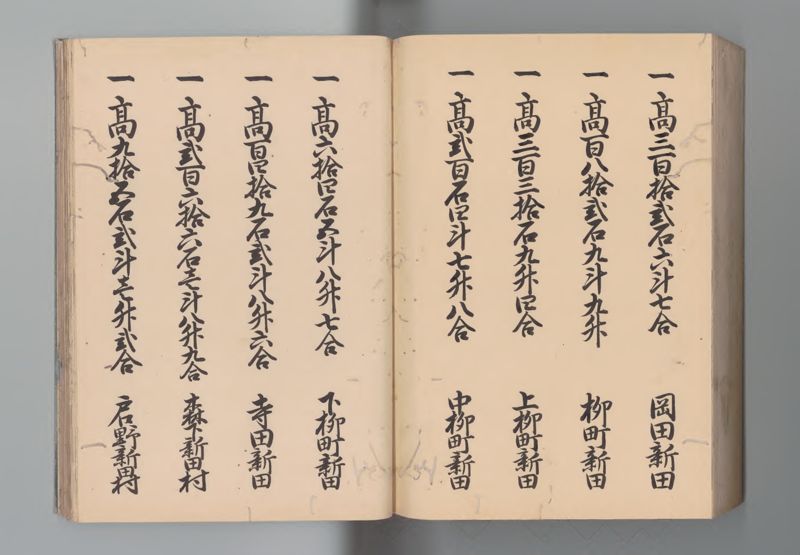 一 高三百拾弐石六斗七合 岡田新田
一 高百八拾弐石九斗九升 柳町新田
一 高三百三拾石九升四合 上柳町新田
一 高弐百石四斗七升八合 中柳町新田
一 高六拾四石五斗八升七合 下柳町新田
一 高百四拾九石弐斗八升六合 寺田新田
一 高弐百六拾六石壱斗八升九合 森下新田村
一 高九拾五石弐斗壱升弐合 戸石野新田村